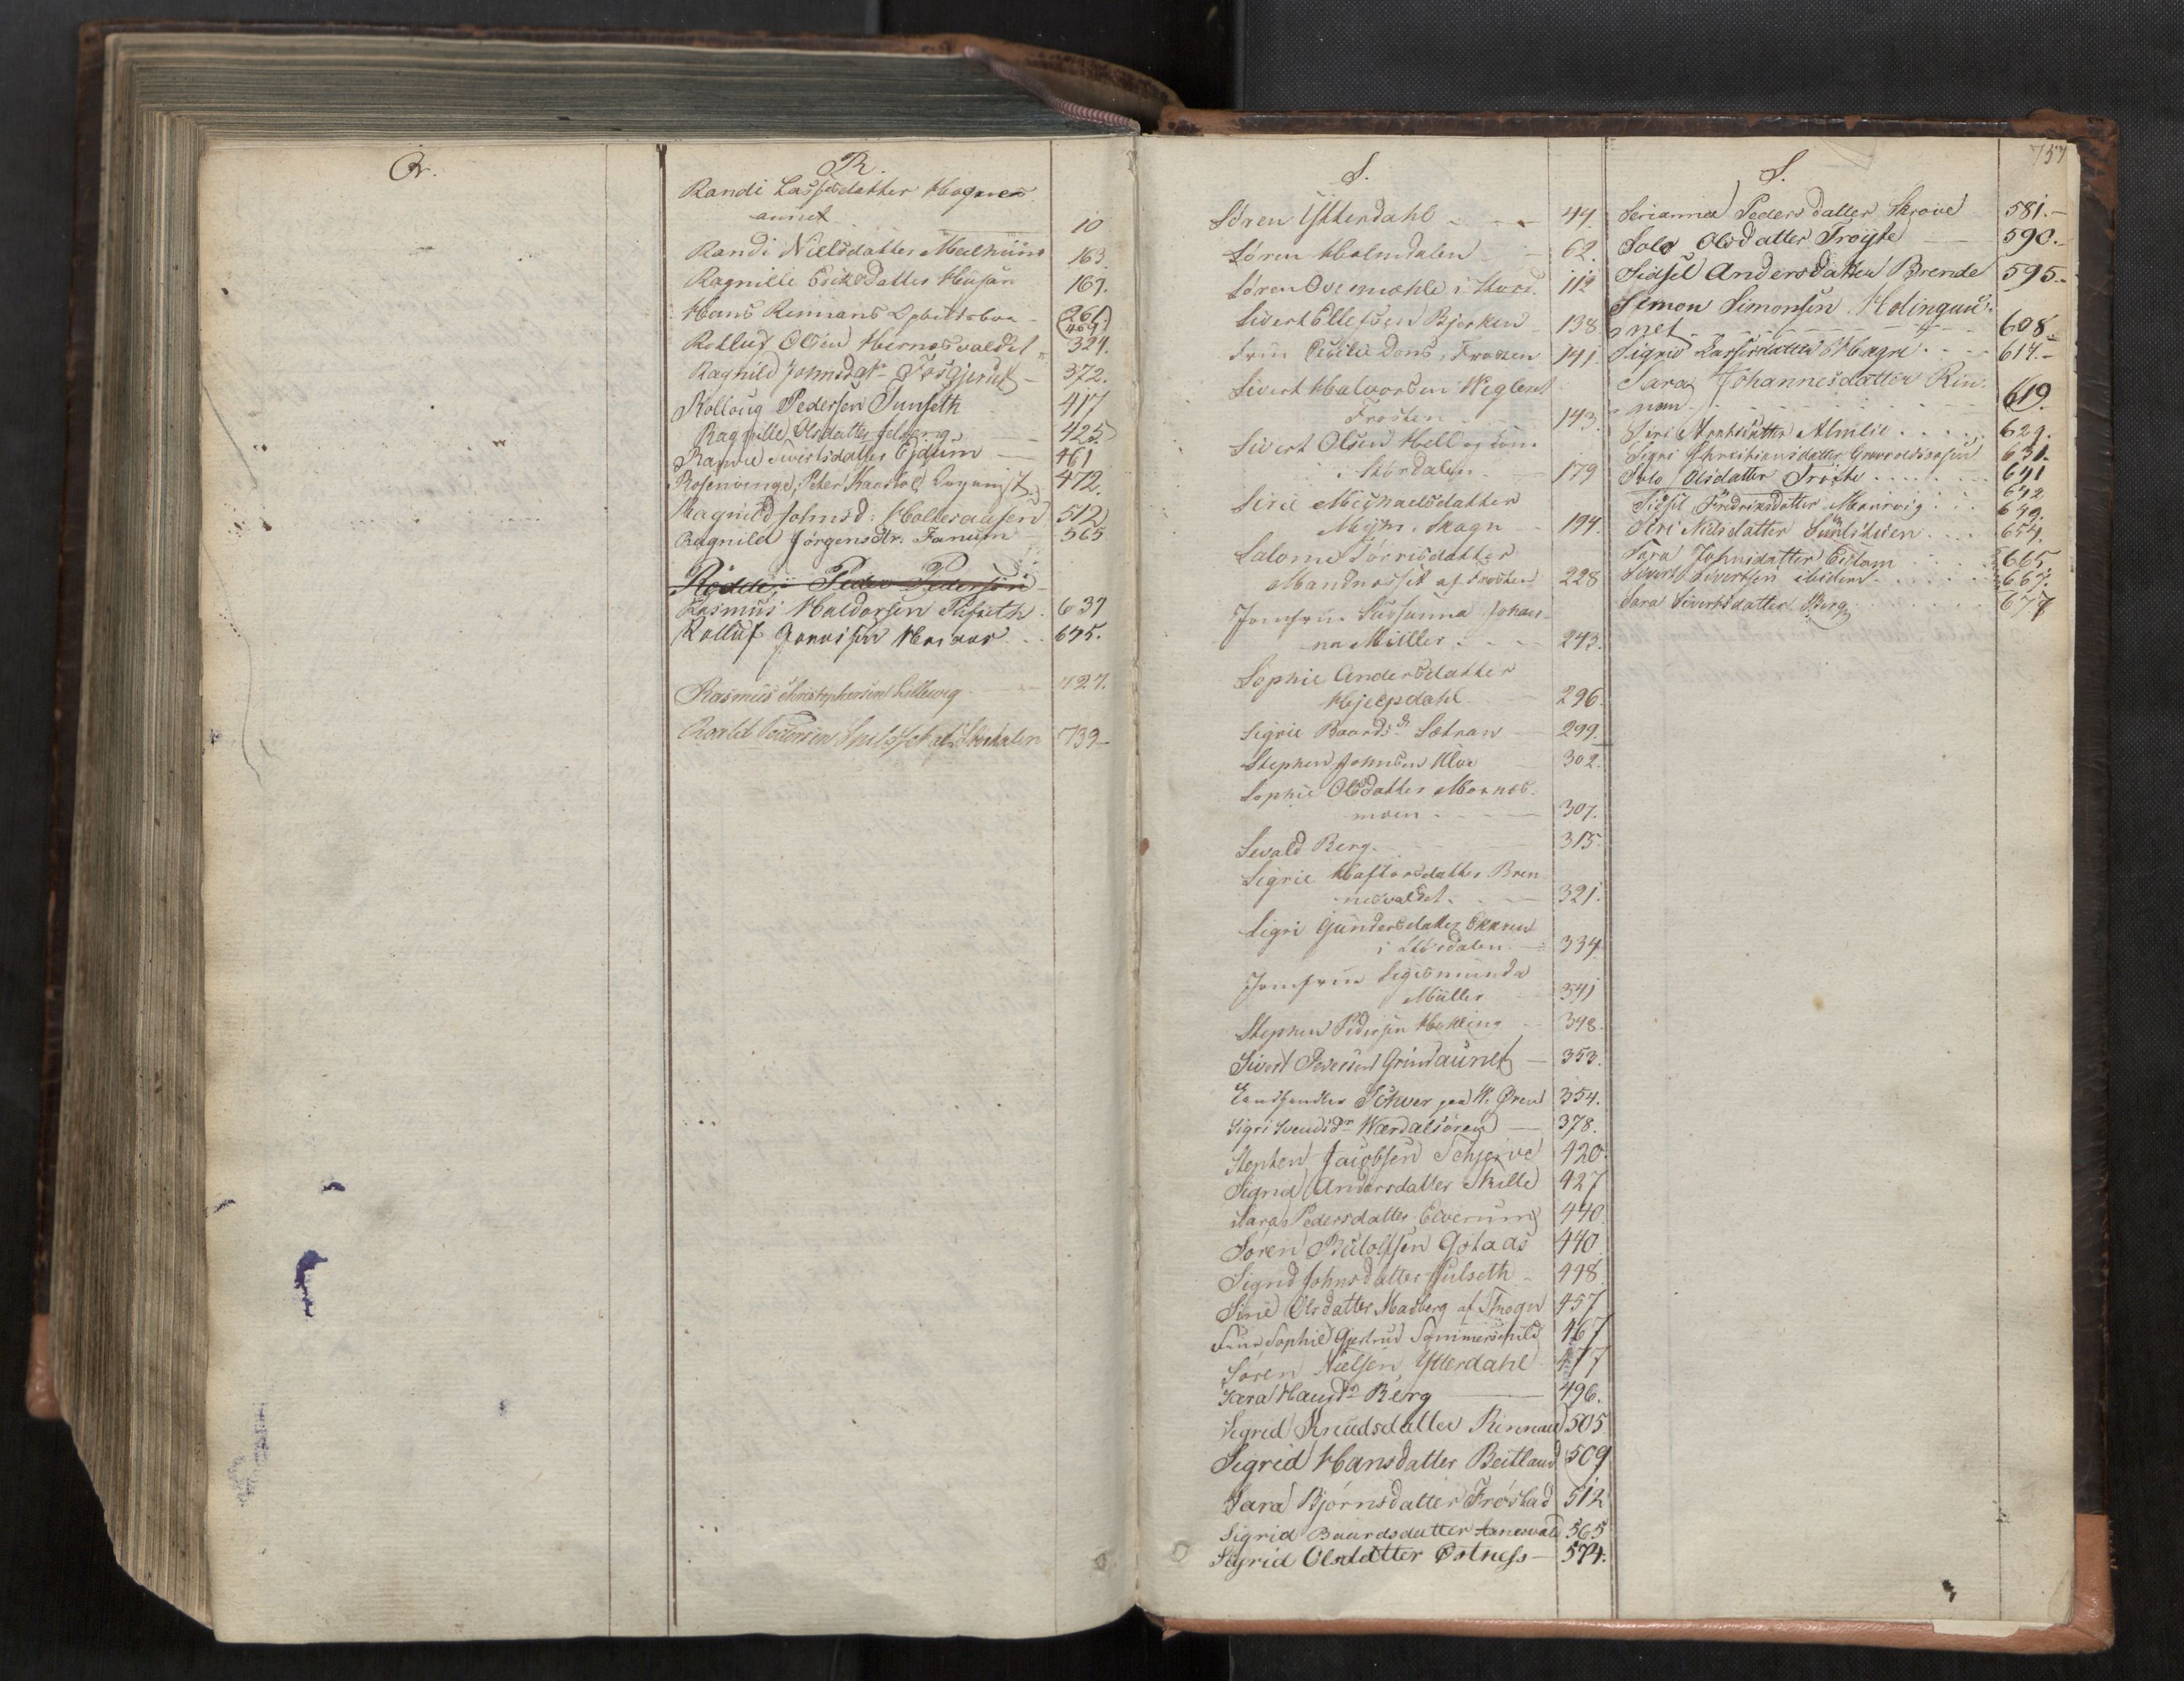 R.
Randi Lassesdatter Hognes
aunet 10
Randi Nielsdatter Meelhuus 163.
Ragnille Eriksdatter Husan 167.
Hans Reinans 261.
469
Rolluf Olsen Hernesvaldet 324.
Ragnild Johnsdatr 372.
Rolloug Pedersen Sunseth 417
Ragnille Olsdatter 425.
Sivertsdatter Eydum 461
Rosenvinge, Peter Organist 472.
Ragnild Johnsd: 512
Ragnild Jørgensdtr. Fanum 565
Rodde, Peder Pedersen
Rasmus Haldorsen Tulseth 637
Rolluf 645.
Rasmus Christophersen 727.
Pedersen 739
S.
Søren Ytterdahl 44.
Søren Holmdalen 62.
Søren Overmohle i Skord. 112
Sivert Ellefsen Bjerken 138
Frue Cecilie Dons, Frosten 141.
Sivert Halvorsen Wiglent
Frosten 143.
Sivert Olsen Hell og Søn
i Stordalen 179
Sirie Michaelsdatter
Myhr. Skogn 194.
Salome Torrisdatter
af Frosten 228
Jomfrue Susanna Johan-
na Müller 243.
Sophie Andersdatter
Hjelpdahl 296.
Sigrie Baardsdr Sætran 299.
Stephen Johnsen Kloe 302.
Sophie Olsdatter Moknes-
moen 307.
Sevald Berg 315.
Sigrie Haftorsdatter Bren
nesvaldet 321.
Sigri Gundersdatter Ekren
i Størdalen 334
Jomfrue Sigismunda
Müller 341
Stephen Pedersen Hokling 348.
Sivert Iversen Grindaunet 353.
Landhandler Schwer paa W. Øren 354.
Sigri Svendsdr Værdalsøren 378.
Stephen Jacobsen Schjerve 420.
Sigrid Andersdatter Skille 427
Sara Pedersdatter Elverum 440.
Søren Rulolfsen Gotaas 440
Sigrid Johnsdatter Julseth 448
Sirie Olsdatter Madberg af Skogn 457
Frue Sophie Gjertrud Sommerschild 467
Søren Nielsen Ytterdahl 477
Sara Hansdr Berg 496.
Sigrid Knudsdatter Rinnan 505
Sigrid Hansdatter Beitland 509
Sara Bjørnsdatter Frøstad 512
Sigrid Baardsdatter 565
Sigrid Olsdatter Østness 574.
757
S.
Serianna Pedersdatter Skrove 581.
Solo Olsdatter Trøyte 590.
Sidsel Andersdatter Brende 595.
Simon Simonsen Molingau-
net 608.
Sigrid Larsesdatter Hægre 614.
Sara Johannesdatter Rin-
nan 619.
Siri Arntsdatter Almlie 629.
Sigri Christiansdatter 631.
Solo Olsdatter Trøite 641
Sidsel Fredriksdatter 642.
649.
Siri Nilsdatter 654.
Sara Johnsdatter Eidom 665.
Sivert Sivertsen ibidem 667.
Sara Sivertsdatter Berg 677